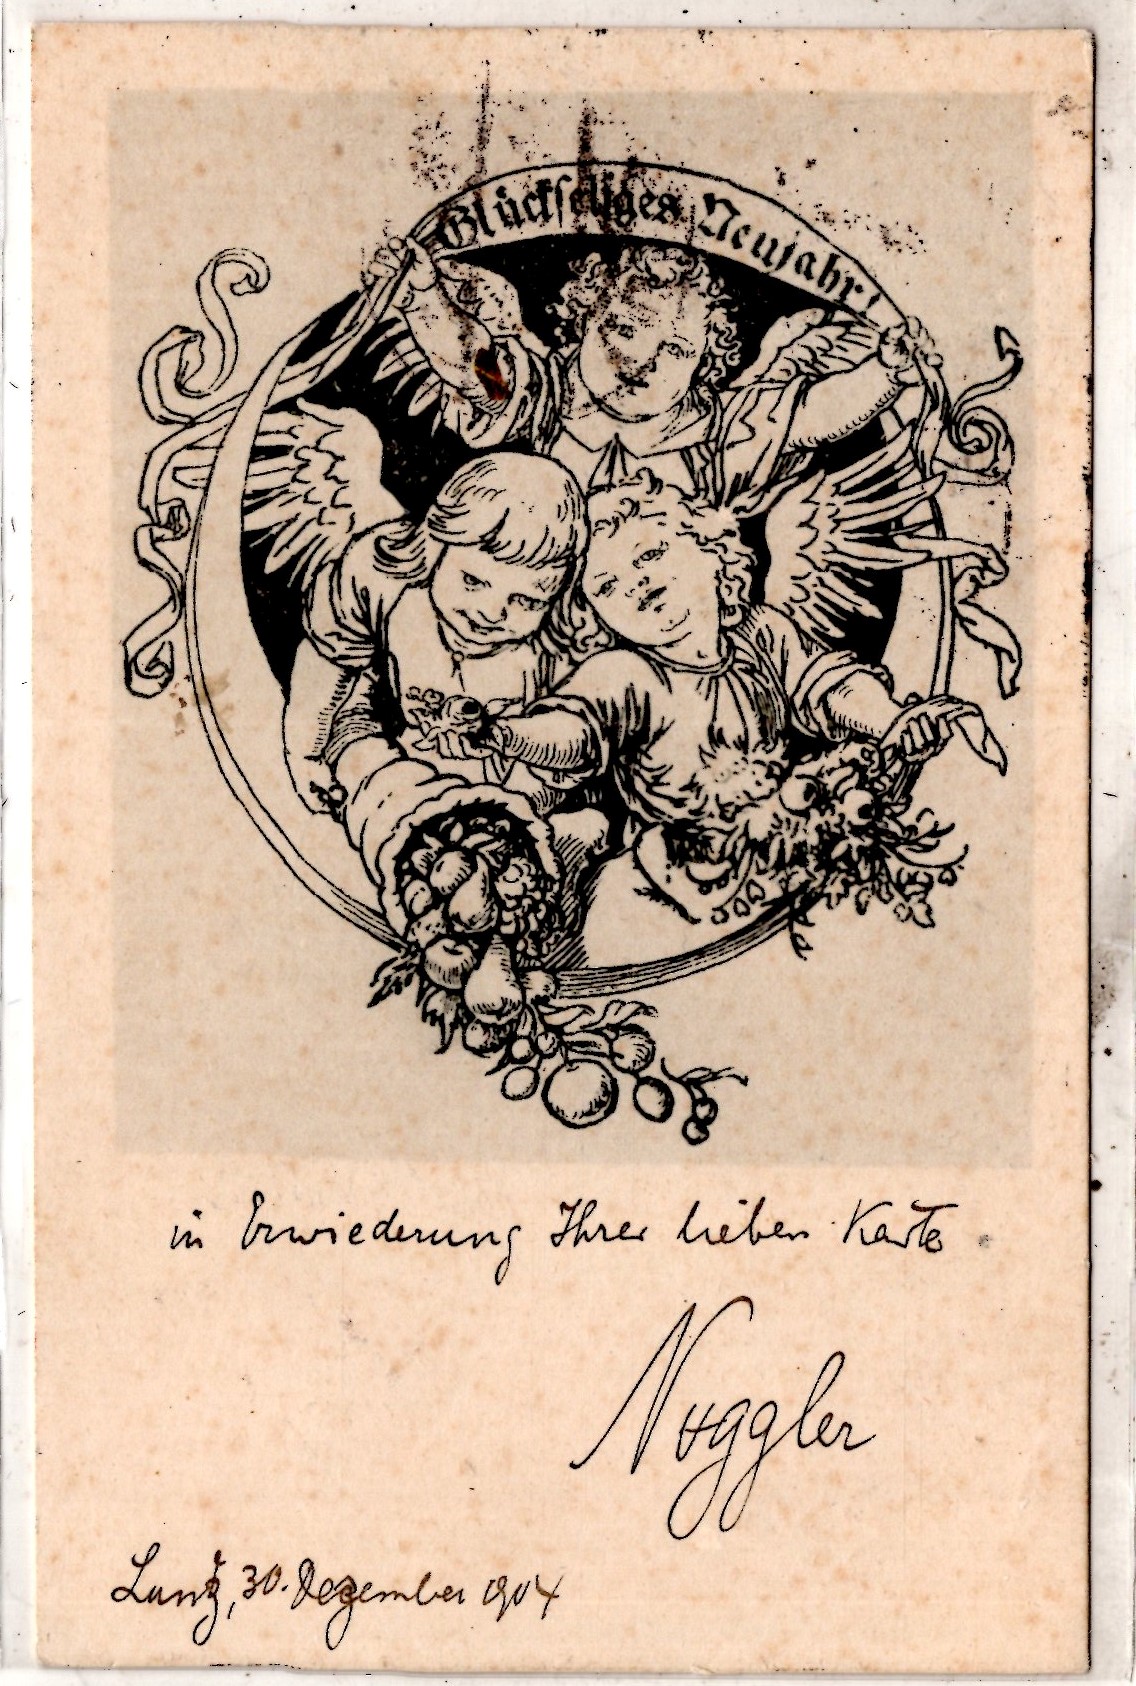 Glückseliges Neujahr!
in Erwiederung Ihrer lieben Karte
Nuggler
Lunz, 30. Dezember 1904